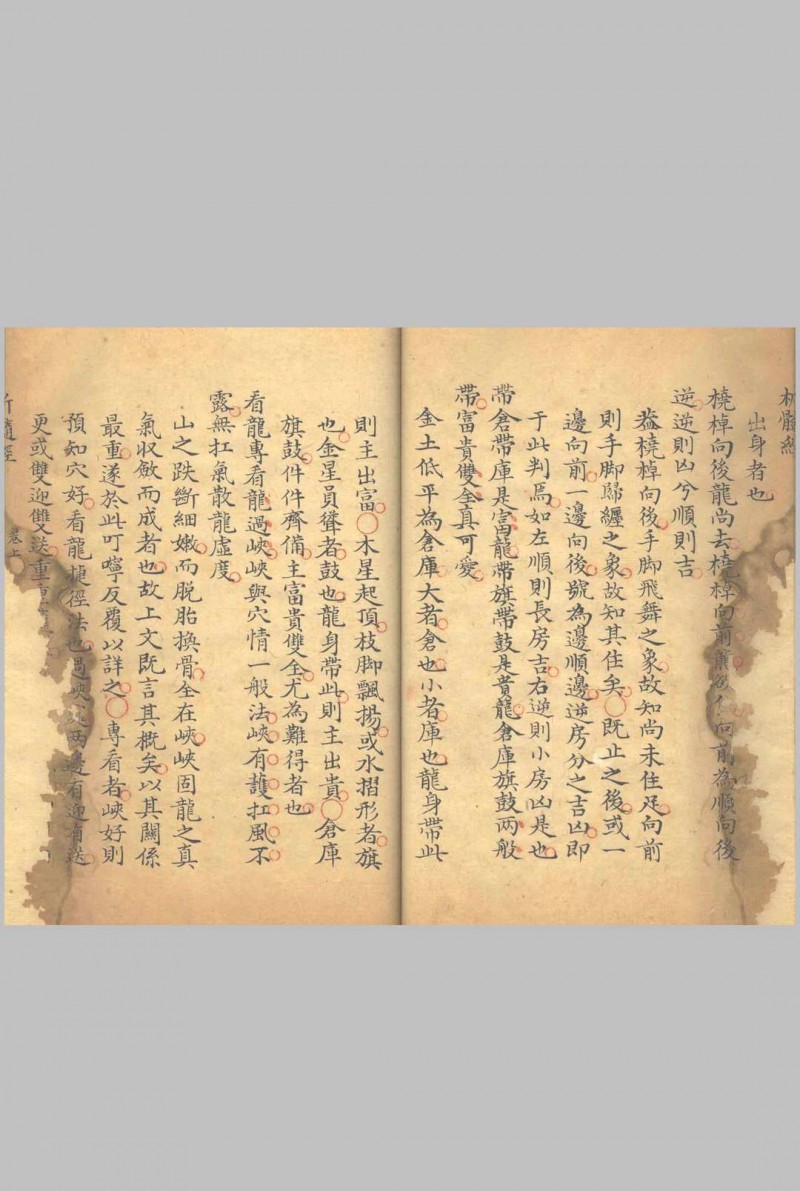 析髓經
出身者也
橈棹向後龍尚去橈棹向前為順向後
逆逆則凶兮順則吉
葢橈棹向後手脚飛舞之象故知尚未住足向前
則手脚歸纏之象故知其住矣〇既止之後或一
邊向前一邊向後號為邊順邊逆房分之吉凶即
于此判焉如左順則長房吉右逆則小房凶是也
帶倉帶庫是富龍帶旗帶鼓是貴龍倉庫旗鼓两般
帶富貴雙全真可愛
金土低平為倉庫大者倉也小者庫也龍身帶此
則主出富〇木星起頂枝脚飄揚或水摺形者旗
也金星員聳者鼓也龍身帶此則主出貴〇倉庫
旗鼓件件齊備主富貴雙全尤為難得者也
看龍專看龍過峽峽與穴情一般法峽有護扛風不
露無扛氣散龍虛度
山之跌斷細嫩而脱胎換骨全在峽峽固龍之真
氣収斂而成者也故上文既言其概矣以其關係
最重遂於此叮嚀反覆以詳之〇專看者峽好則
預知穴好看龍捷徑法也過峽两邊有迎有送
更或雙迎雙送重
析髓經 卷上